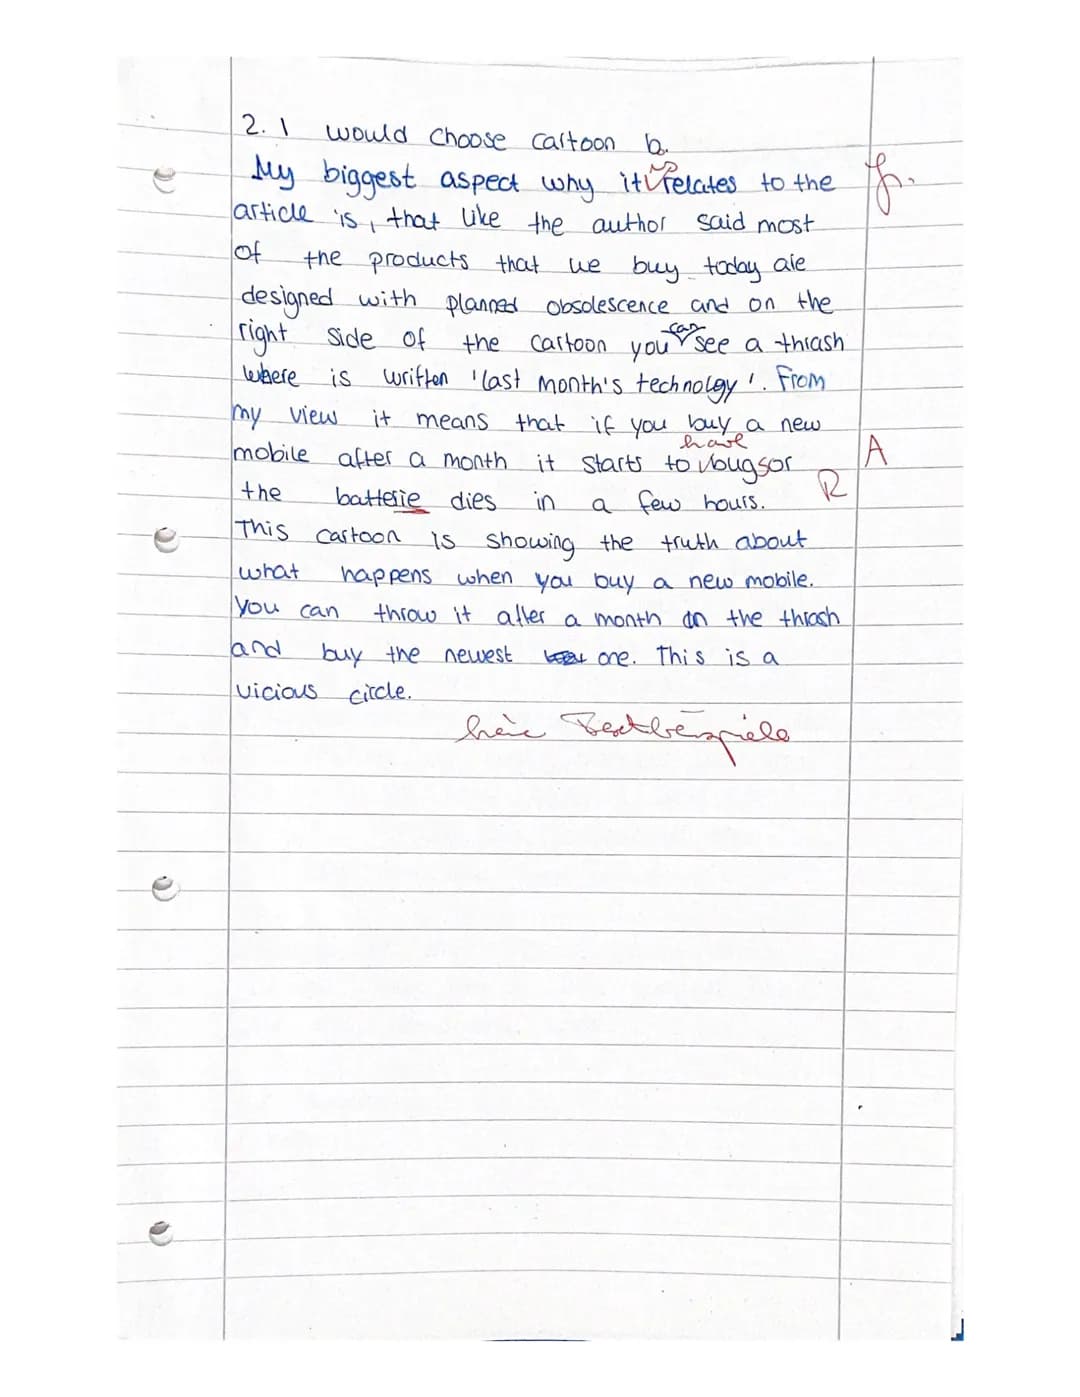 2. I would choose cartoon b.
My biggest aspect why it relates to the
article is, that like the author said most
of the products that we buy today are
designed with planned obsolescence and on the
can
right side of the cartoon you see a thrash
where is written 'last month's technolgy'. From
my view it means that if you buy a new
have
mobile after a month it starts to bugs or A
the batterie dies in a few hours. R
This cartoon is showing the truth about
what happens when you buy a new mobile.
You can throw it after a month on the thrash
and buy the newest one. This is a
vicious circle.